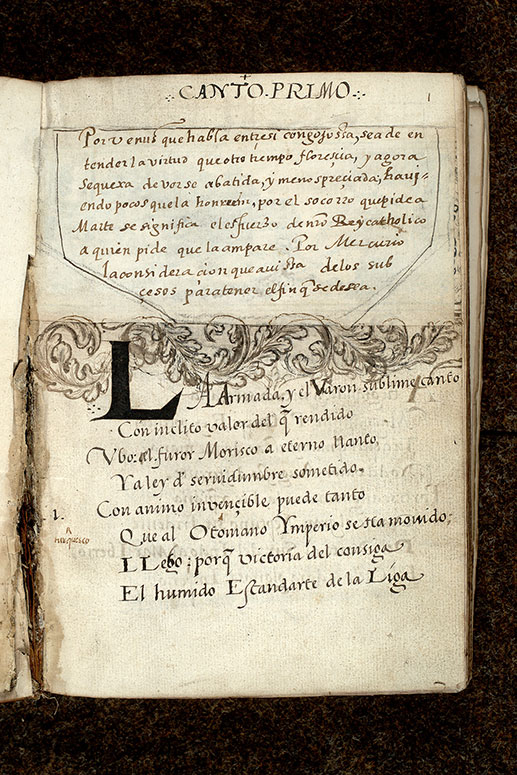 CANTO. PRIMO
1
Por venus que habla entresi congojosa, sea de en
tender la virtud que otro tiempo florescia, y agora
sequexa de verse abatida, y menospreciada, havi-
endo pocos que la honrren. por el socorro que pide a
Marte se significa el esfuerzo de nro Rey catholico
a quien pide que la ampare. Por Mercurio
la consideracion que avista de los sub
cesos para tener el fin q̄ se desea.
LA Armada, y el Varon sublime canto
Con inclito valor del q̄ rendido
Vbo: al furor Morisco a eterno llanto,
Y a ley d̄ servidumbre sometido.
1. Con animo invençible puede tanto
Que al Otomano Ymperio se ha movido;
LLego: porq̄ victoria del consiga
El humido Estandarte de la Liga